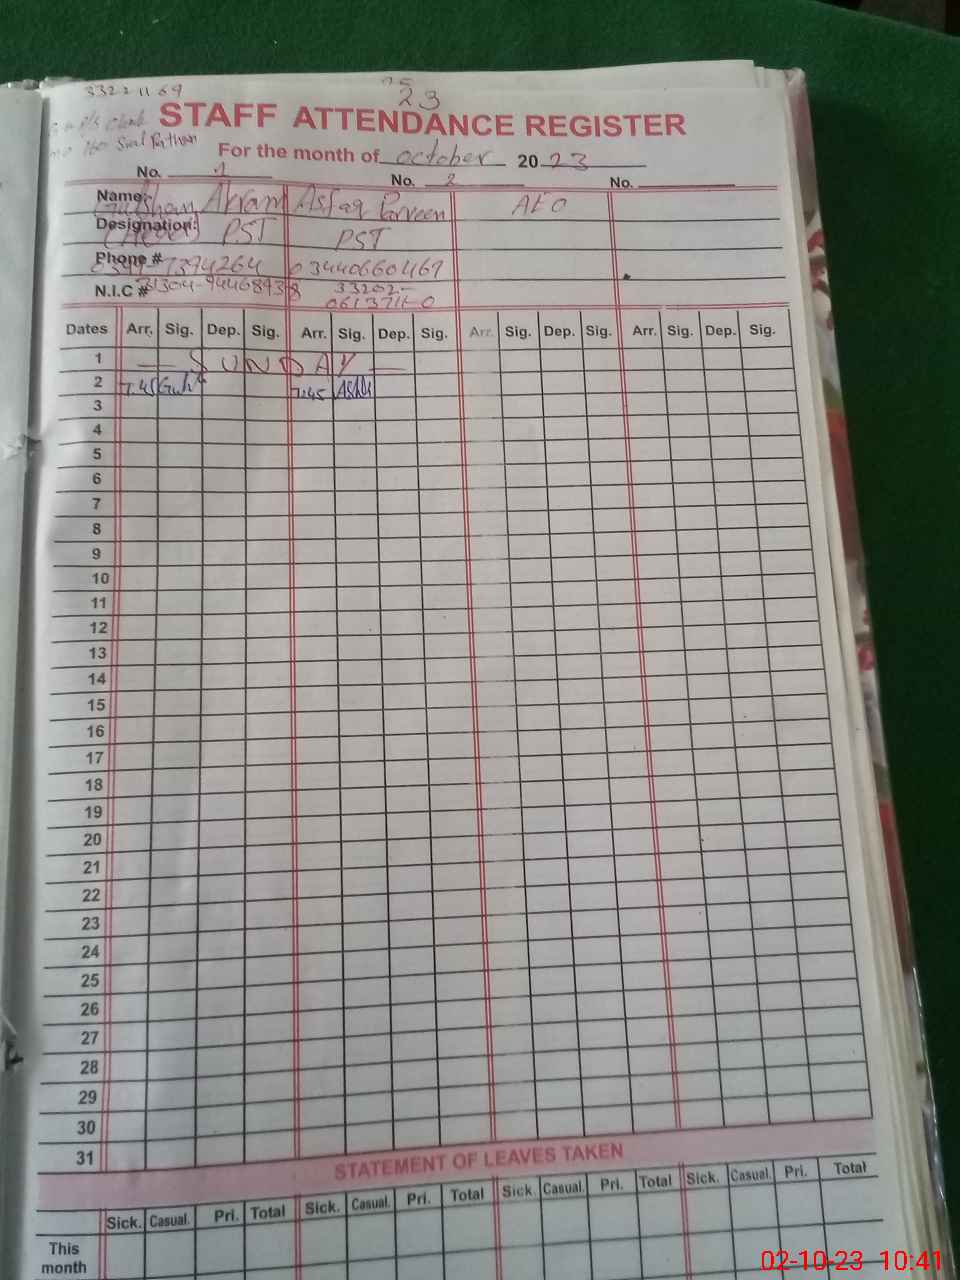 33221169
25
23
STAFF ATTENDANCE REGISTER
For the month of october 2023
No. 1 No. 2 No.
Name:- Gulshan Akram Asfaq Parveen AEO
Designation: (Head) PST PST
Phone # 7394264 03440660469
N.I.C # 31304-9446893-8 33202-
0613711-0
Dates Arr. Sig. Dep. Sig. Arr. Sig. Dep. Sig. Arr. Sig. Dep. Sig. Arr. Sig. Dep. Sig.
1 — SUNDAY —
2 7.45 7.45
3
4
5
6
7
8
9
10
11
12
13
14
15
16
17
18
19
20
21
22
23
24
25
26
27
28
29
30
31
STATEMENT OF LEAVES TAKEN
Sick. Casual. Pri. Total Sick. Casual. Pri. Total Sick. Casual. Pri. Total Sick. Casual. Pri. Total
This
month
02-10-23 10:41